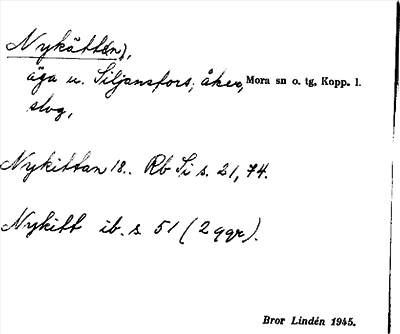 Nykätt(en),
äga u. Siljansfors; åker, Mora sn o. tg, Kopp. l.
slog,
Nykittan 18.. Rb Si s. 21, 74.
Nykitt ib. s 51 (2 ggr).
Bror Lindén 1945.